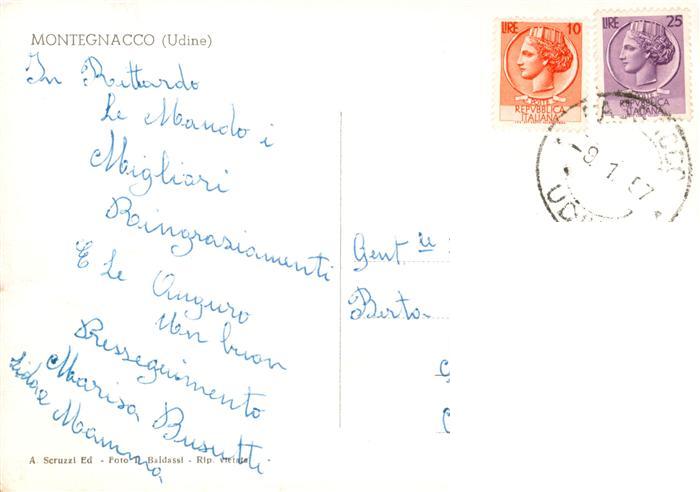 MONTEGNACCO (Udine)
In Rittardo
Le Mando i
Migliari
Ringrasiamenti
E Le Anguro
Un buon
Presseguimento
Marisa Busutti
Lida e Mamma
A. Scruzzi Ed - Foto Baldassi - Rip. vietata
LIRE 10
POSTE
REPVBBLICA
ITALIANA
LIRE 25
POSTE
REPVBBLICA
ITALIANA
Gent ie
Berto